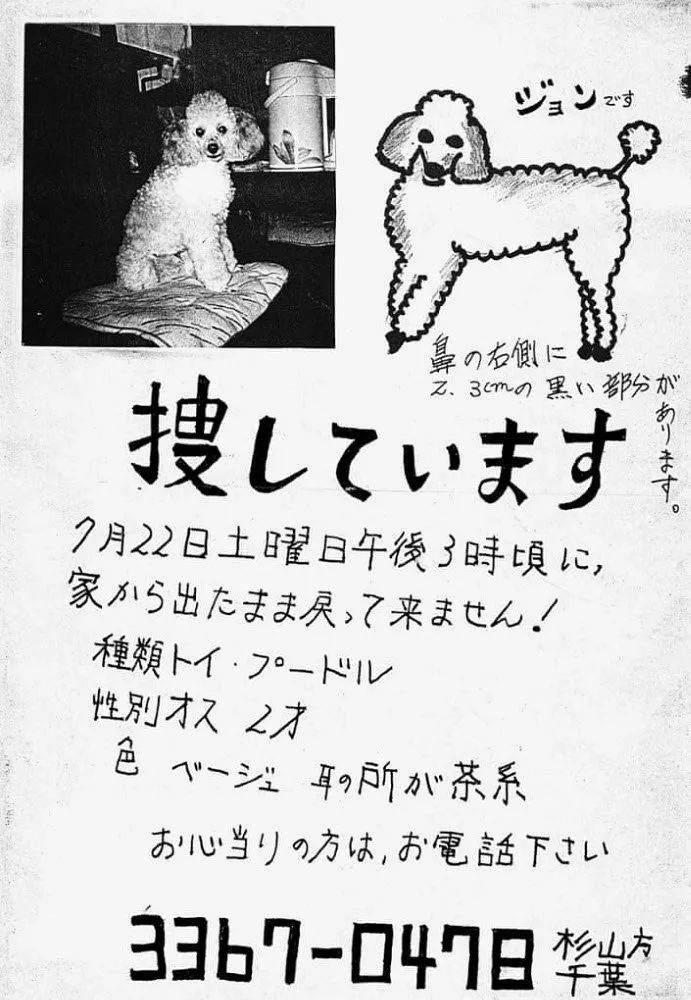 ジョンです
鼻の右側に
2.3cmの黒い部分が
あります。
捜しています
7月22日土曜日午後3時頃に,
家から出たまま戻って来ません!
種類トイ・プードル
性別オス 2才
色 ベージュ 耳の所が茶系
お心当りの方は,お電話下さい
3367-0478 杉山方
千葉